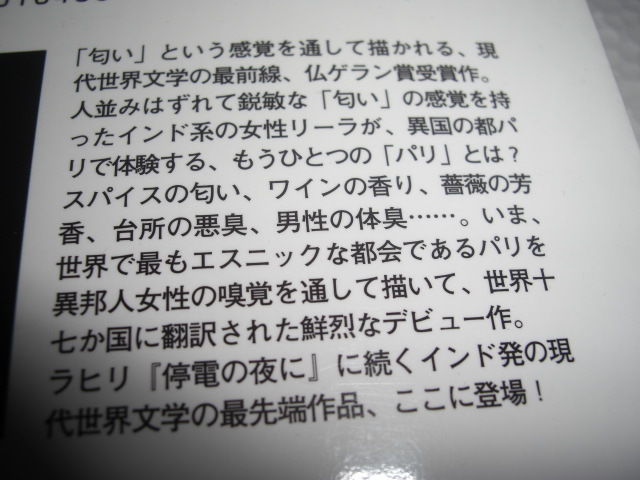 「匂い」という感覚を通して描かれる、現
代世界文学の最前線、仏ゲラン賞受賞作。
人並みはずれて鋭敏な「匂い」の感覚を持
ったインド系の女性リーラが、異国の都パ
リで体験する、もうひとつの「パリ」とは?
スパイスの匂い、ワインの香り、薔薇の芳
香、台所の悪臭、男性の体臭……。いま、
世界で最もエスニックな都会であるパリを
異邦人女性の嗅覚を通して描いて、世界十
七か国に翻訳された鮮烈なデビュー作。
ラヒリ『停電の夜に』に続くインド発の現
代世界文学の最先端作品、ここに登場!